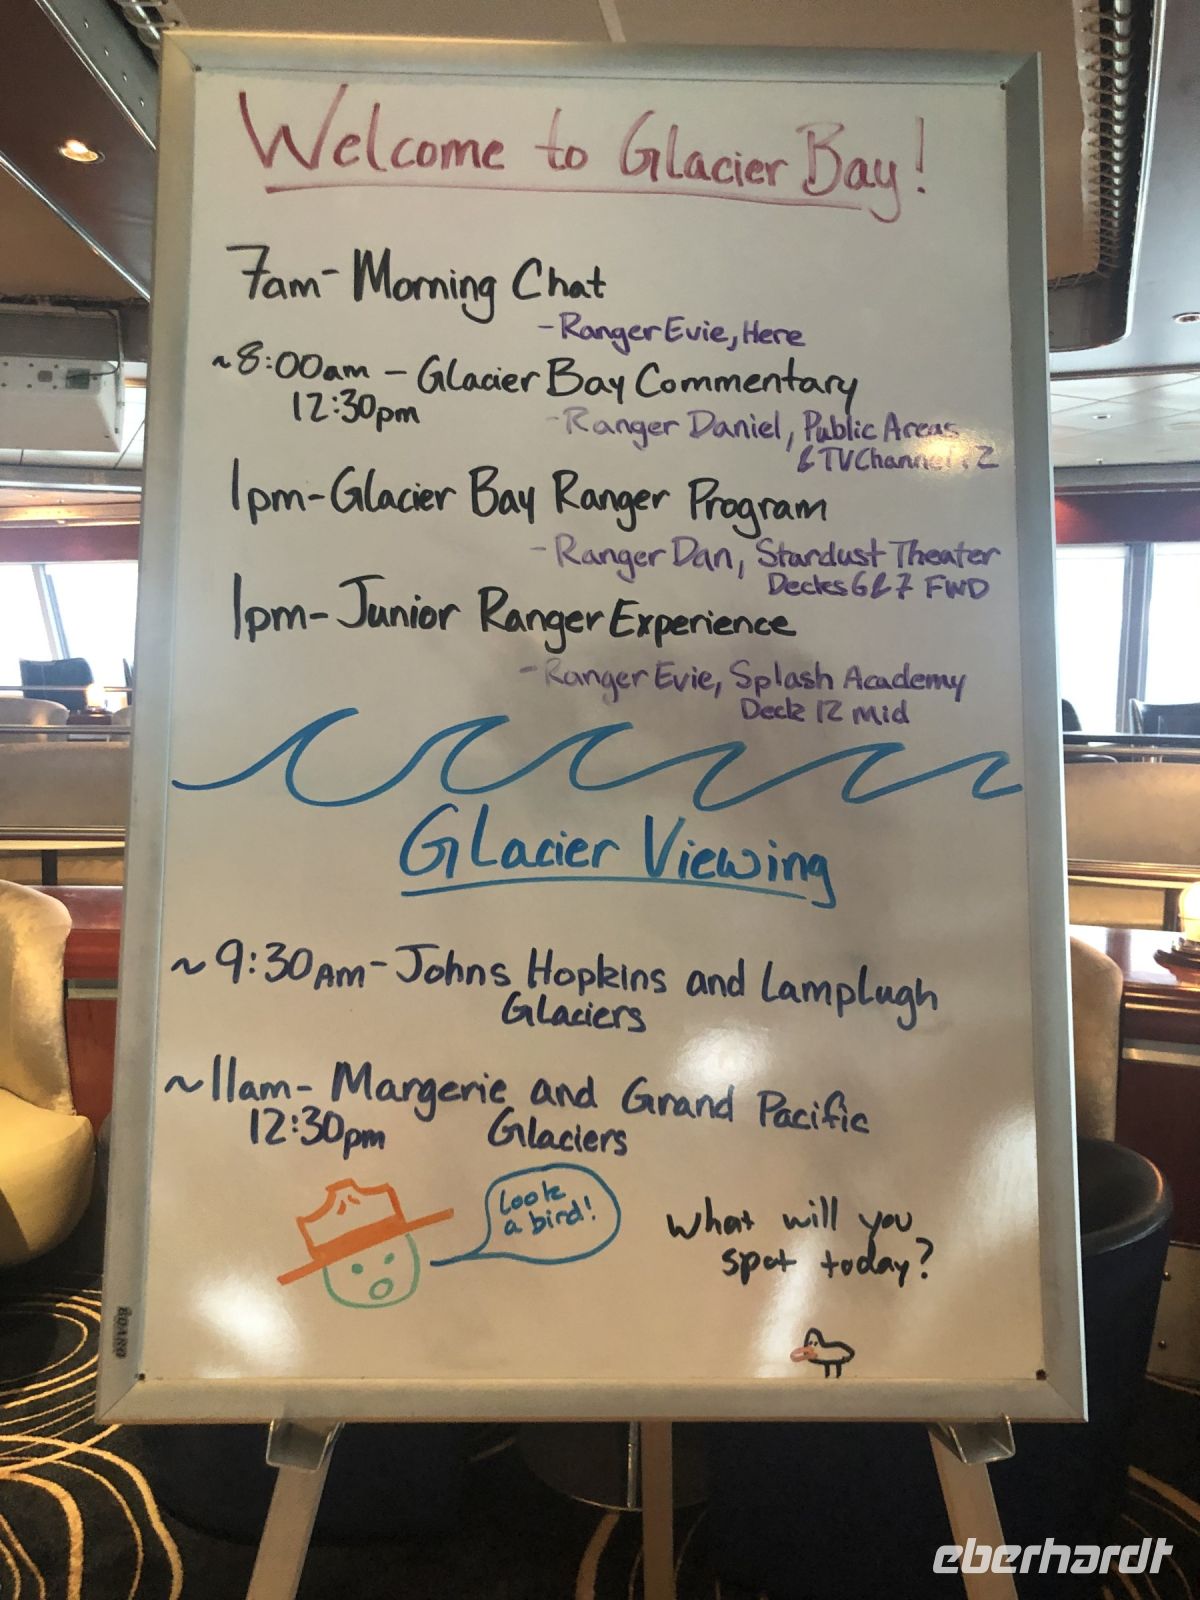 Welcome to Glacier Bay!
7am- Morning Chat
- Ranger Evie, Here
~8:00am - Glacier Bay Commentary
12:30pm
- Ranger Daniel, Public Areas
& TV Channel 2
1pm- Glacier Bay Ranger Program
- Ranger Dan, Stardust Theater
Decks 6&7 FWD
1pm- Junior Ranger Experience
- Ranger Evie, Splash Academy
Deck 12 mid
Glacier Viewing
~9:30am- Johns Hopkins and Lamplugh
Glaciers
~11am- Margerie and Grand Pacific
12:30pm Glaciers
Look
a bird!
What will you
spot today?
BOARD
eberhardt